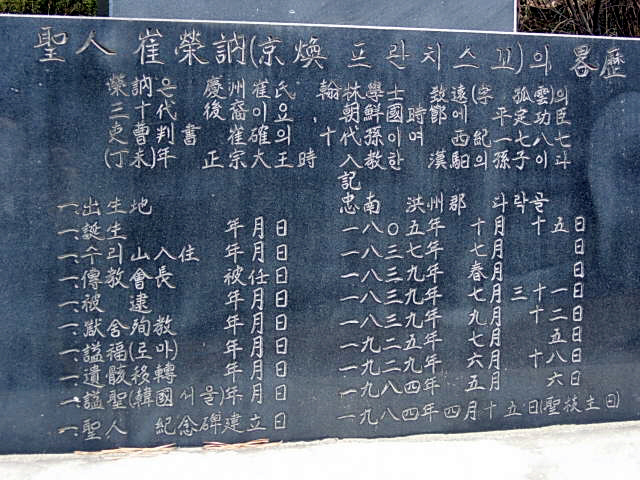 聖人 崔榮訥(京煥 프란치스꼬)의 畧歷
榮訥은 慶洲崔氏 翰林學士 致遠(字 孤雲)의
三十代 後裔이요 朝鮮國 時 平定功臣
吏曹判書 崔確의 十代孫이여 西紀 八七
(丁未)年 正宗大王時 入敎한 漢馹의 孫子이
記
一.出生地 忠南 洪州郡 다락골
一.誕生 年月日 一八〇五年 十月 十五日
一.수리山 入住 年月日 一八三七年 七月 日
一.傳教會長 被任日 一八三九年 春月 日
一.被逮 年月日 一八三九年 七月 三十一日
一.獄舍殉教 年月日 一八三九年 九月 十二日
一.諡福(로마) 年月日 一九二五年 七月 五日
一.遺骸移轉 年月日 一九二九年 六月 十八日
一.諡聖(韓國 서울)年月日 一九八四年 五月 六日
一.聖人 紀念碑建立日 一九八四年四月十五日(聖枝主日)